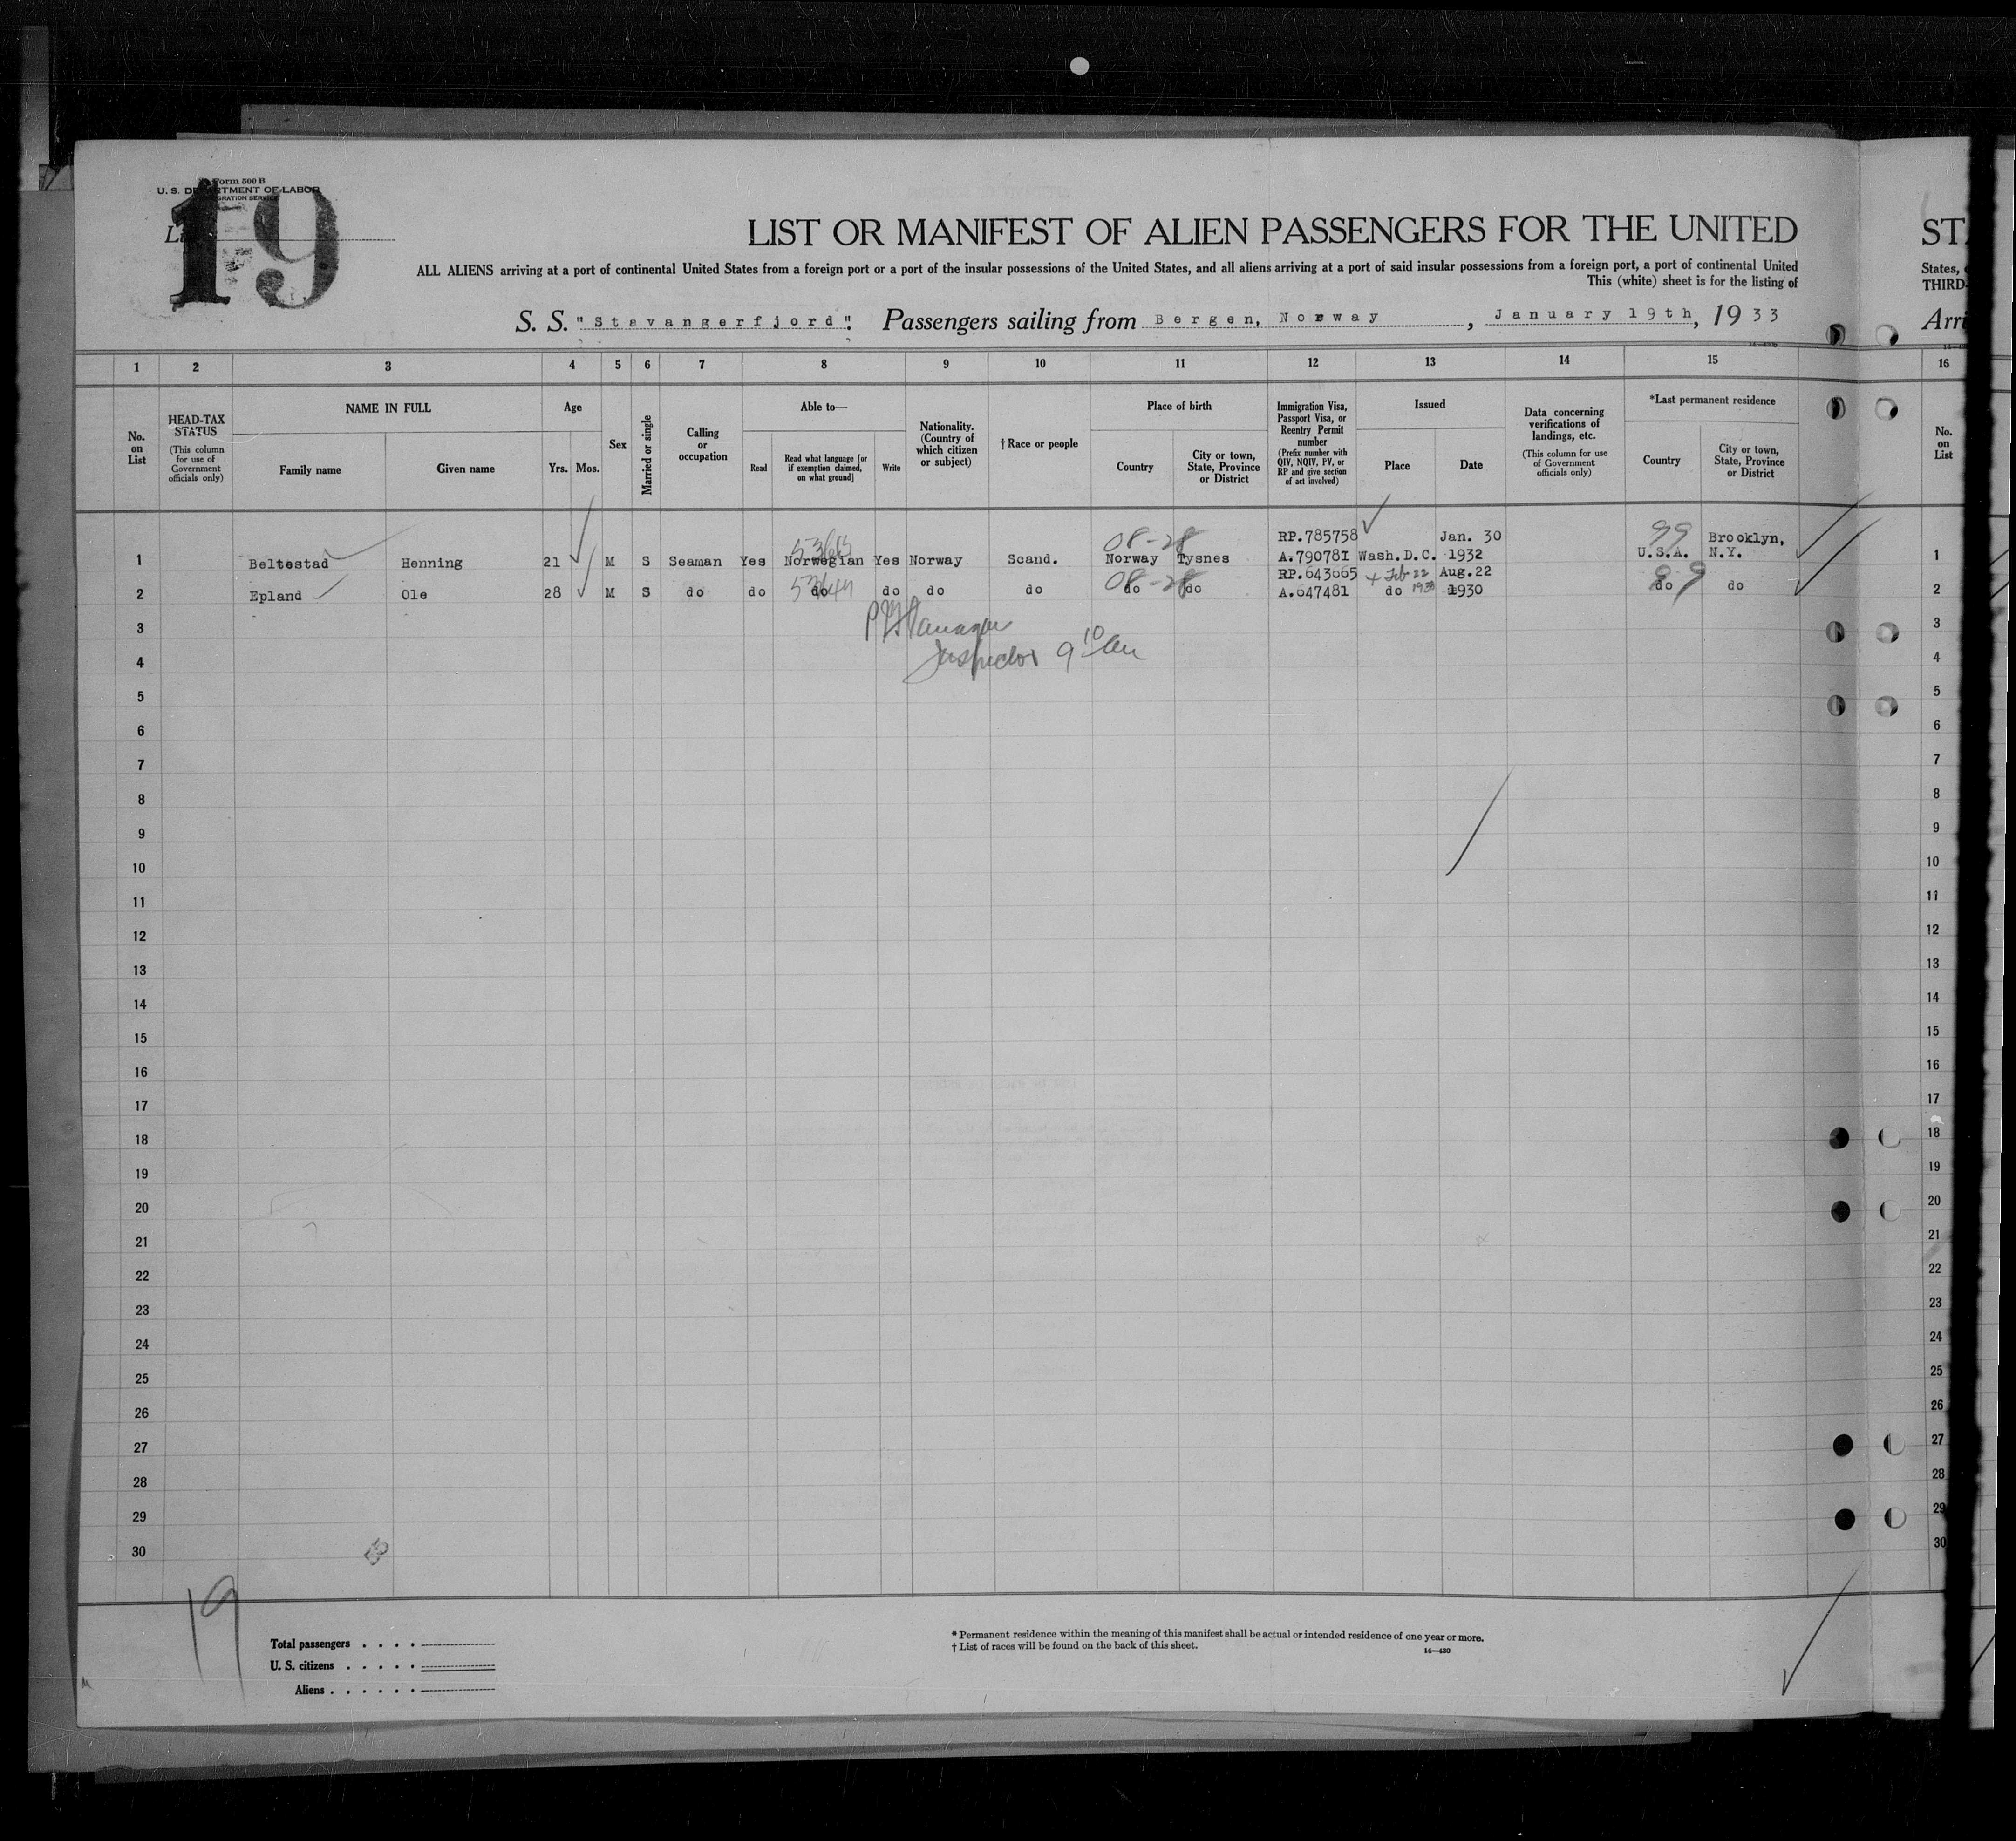 Form 500 B
U. S. DEPARTMENT OF LABOR
IMMIGRATION SERVICE
19
LIST OR MANIFEST OF ALIEN PASSENGERS FOR THE UNITED
ALL ALIENS arriving at a port of continental United States from a foreign port or a port of the insular possessions of the United States, and all aliens arriving at a port of said insular possessions from a foreign port, a port of continental United
This (white) sheet is for the listing of
S. S. "Stavangerfjord". Passengers sailing from Bergen, Norway, January 19th, 1933
ST
States,
THIRD-
Arri
1 2 3 4 5 6 7 8 9 10 11 12 13 14 15 16
No. on List
HEAD-TAX STATUS (This column for use of Government officials only)
NAME IN FULL
Family name Given name
Age
Yrs. Mos.
Sex
Married or single
Calling or occupation
Able to—
Read Read what language [or if exemption claimed, on what ground] Write
Nationality. (Country of which citizen or subject)
†Race or people
Place of birth
Country City or town, State, Province or District
Immigration Visa, Passport Visa, or Reentry Permit number (Prefix number with QIV, NQIV, PV, or RP and give section of act involved)
Issued
Place Date
Data concerning verifications of landings, etc. (This column for use of Government officials only)
*Last permanent residence
Country City or town, State, Province or District
No. on List
08-28 RP.785758 Jan. 30 99 Brooklyn,
1 Beltestad Henning 21 M S Seaman Yes Norwegian Yes Norway Scand. Norway Tysnes A.790781 Wash.D.C. 1932 U.S.A. N.Y. 1
08-28 RP.643665 + Feb 22 Aug.22 99
2 Epland Ole 28 M S do do do do do do do do A.647481 do 1930 do do 2
3 3
Inspector 9 10 am
4 4
5 5
6 6
7 7
8 8
9 9
10 10
11 11
12 12
13 13
14 14
15 15
16 16
17 17
18 18
19 19
20 20
21 21
22 22
23 23
24 24
25 25
26 26
27 27
28 28
29 29
30 30
19
Total passengers . . . .
U. S. citizens . . . . .
Aliens . . . . . .
* Permanent residence within the meaning of this manifest shall be actual or intended residence of one year or more.
† List of races will be found on the back of this sheet.
14—430